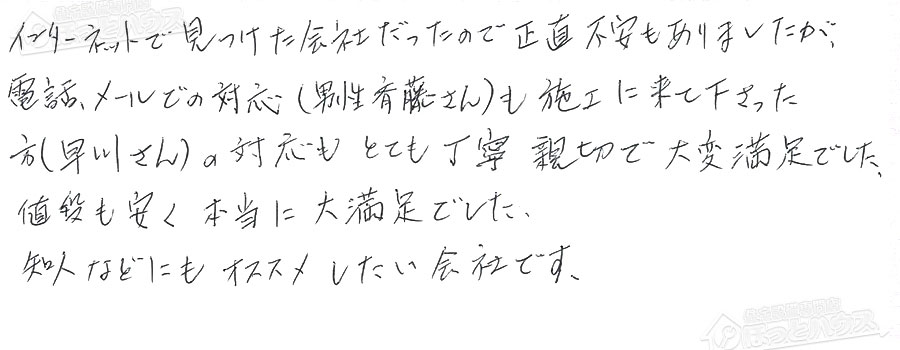 インターネットで見つけた会社だったので正直不安もありましたが、
電話、メールでの対応(男性斉藤さん)も施工に来て下さった
方(早川さん)の対応もとても丁寧親切で大変満足でした。
値段も安く本当に大満足でした。
知人などにもオススメしたい会社です。
ほっとハウス